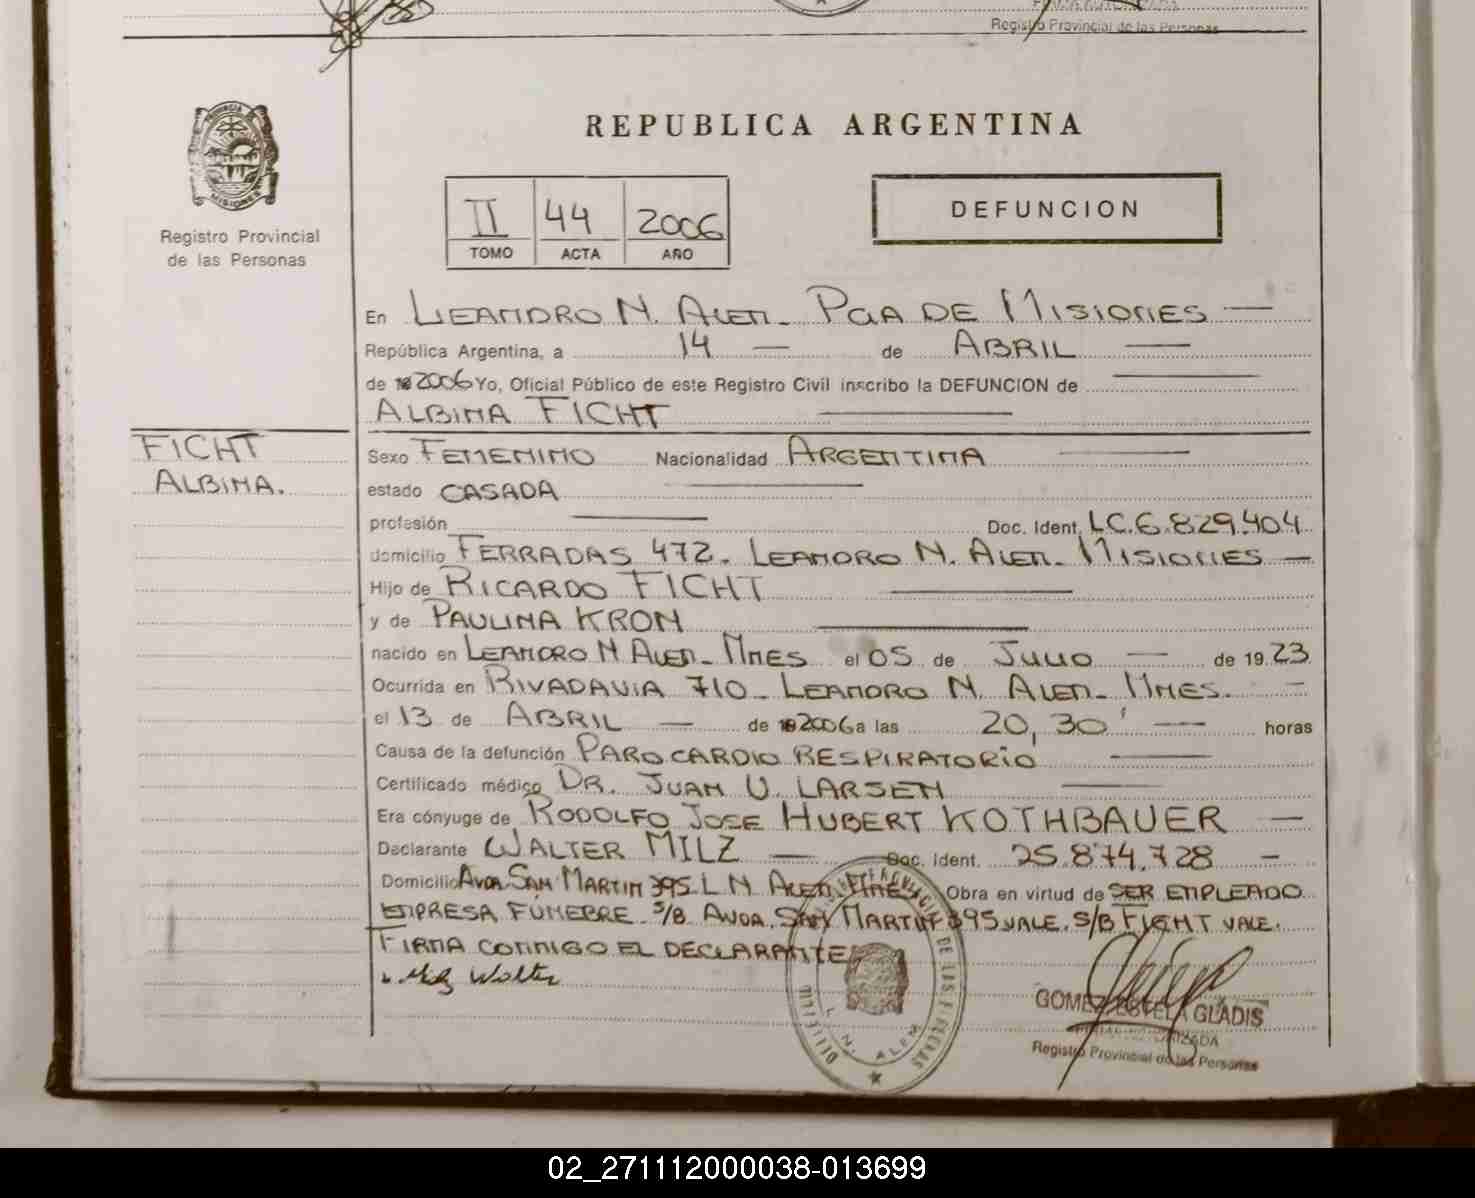 Registro Provincial de las Personas
REPUBLICA ARGENTINA
PROVINCIA DE
MISIONES
Registro Provincial
de las Personas
II 44 2006
TOMO ACTA AÑO
DEFUNCION
En LEANDRO N. ALEM - PCIA DE MISIONES —
República Argentina, a 14 — de ABRIL —
de 2006 Yo, Oficial Público de este Registro Civil inscribo la DEFUNCION de —
ALBINA FICHT —
FICHT
ALBINA.
Sexo FEMENINO Nacionalidad ARGENTINA —
estado CASADA —
profesión — Doc. Ident. L.C. 6.829.404
domicilio FERRADAS 472. LEANDRO N. ALEM - MISIONES —
Hijo de RICARDO FICHT —
y de PAULINA KRON —
nacido en LEANDRO N ALEM - MNES el 05 de JULIO — de 1923
Ocurrida en RIVADAVIA 710 - LEANDRO N. ALEM - MNES. —
el 13 de ABRIL — de 2006 a las 20,30' — horas
Causa de la defunción PARO CARDIO RESPIRATORIO —
Certificado médico DR. JUAN U. LARSEN —
Era cónyuge de RODOLFO JOSE HUBERT KOTHBAUER —
Declarante WALTER MILZ — Doc. Ident. 25.874.728 —
Domicilio AVDA. SAN MARTIN 395 L N. ALEM, MNES, Obra en virtud de SER EMPLEADO
EMPRESA FUNEBRE. S/B AVDA. SAN MARTIN 395 VALE. S/B FICHT VALE.
FIRMA CONMIGO EL DECLARANTE
Milz Walter
GOMEZ ESTELA GLADIS
FIRMA AUTORIZADA
Registro Provincial de las Personas
DE LAS PERSONAS
L. N. ALEM
02_271112000038-013699